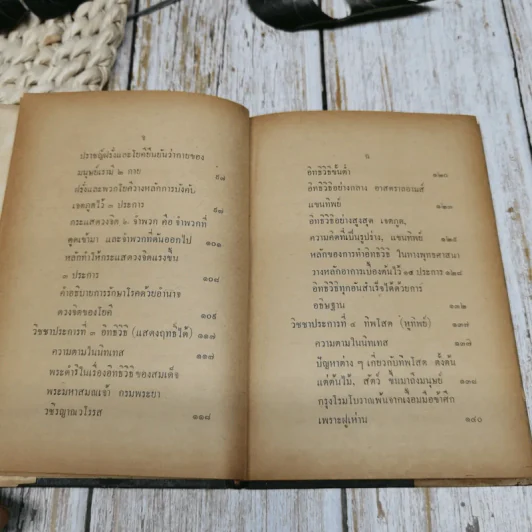 ข
ปราชญ์ฝรั่งและโยคียืนยันว่ากายของ
มนุษย์เรามี ๒ กาย ๙๗
ฝรั่งและพวกโยคีวางหลักการบังคับ
เจตภูตไว้ ๓ ประการ ๙๘
กระแสดวงจิต ๖ จำพวก คือ จำพวกที่
ดูดเข้ามา และจำพวกที่ดันออกไป ๑๐๑
หลักทำให้กระแสดวงจิตแรงขึ้น
๓ ประการ ๑๐๘
คำอธิบายการรักษาโรคด้วยอำนาจ
ดวงจิตของโยคี ๑๐๙
วิชชาประการที่ ๓ อิทธิวิธี (แสดงฤทธิ์ได้) ๑๑๗
ความตามในนิทเทส ๑๑๗
พระดำริในเรื่องอิทธิวิธีของสมเด็จ
พระมหาสมณเจ้า กรมพระยา
วชิรญาณวโรรส ๑๑๘
ค
อิทธิวิธีขั้นต่ำ ๑๒๐
อิทธิวิธีอย่างกลาง อาสตราลกามส์
แขนทิพย์ ๑๒๓
อิทธิวิธีอย่างสูงสุด เจตภูต,
ความคิดที่เป็นรูปร่าง, แขนทิพย์ ๑๒๕
หลักของการทำอิทธิวิธี ในทางพุทธศาสนา
วางหลักอาการเบื้องต้นไว้ ๑๕ ประการ ๑๒๘
อิทธิวิธีทุกอันสำเร็จได้ด้วยการ
อธิษฐาน ๑๓๒
วิชชาประการที่ ๔ ทิพโสต (หูทิพย์) ๑๓๗
ความตามในนิทเทส ๑๓๗
ปัญหาต่าง ๆ เกี่ยวกับทิพโสต ตั้งต้น
แต่ต้นไม้, สัตว์ ขึ้นมาถึงมนุษย์ ๑๓๘
กรุงโรมโบราณพ้นจากเงื้อมมือข้าศึก
เพราะฝูงห่าน ๑๔๐